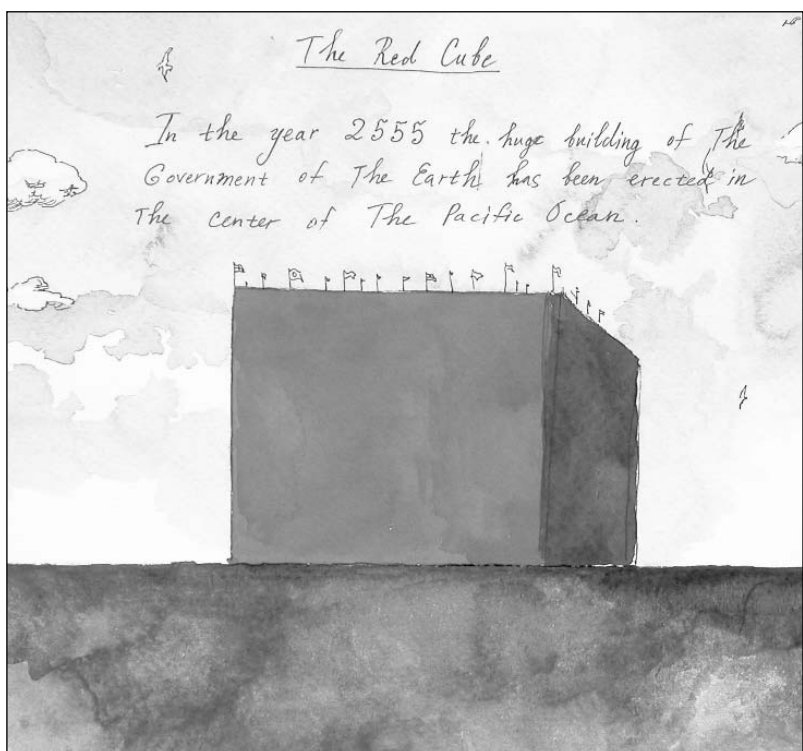 The Red Cube
In the year 2555 the huge building of The
Government of The Earth has been erected in
The center of The Pacific Ocean.